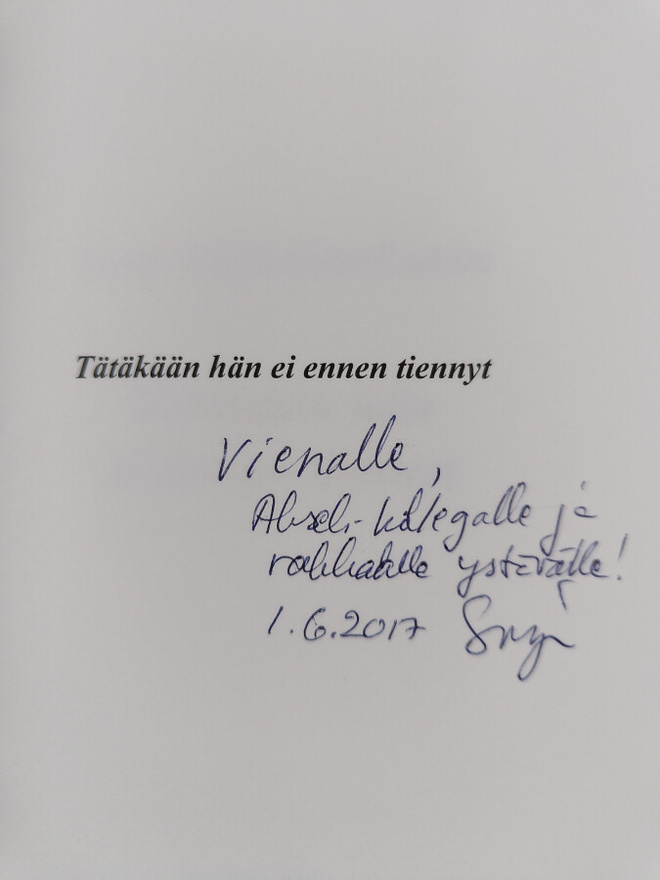 Tätäkään hän ei ennen tiennyt
Vienalle,
Akseli-kollegalle ja
rakkaalle ystävälle!
1.6.2017